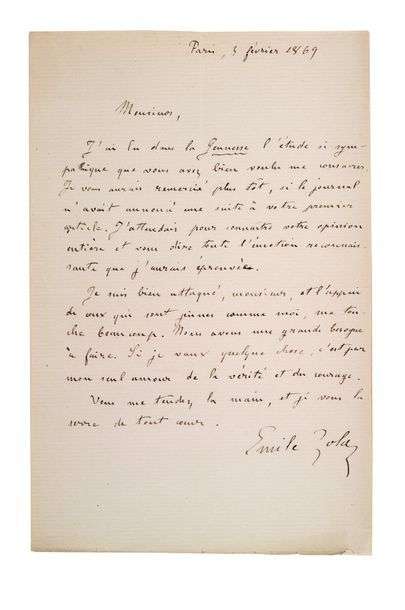 Paris, 5 février 1869
Monsieur,
J'ai lu dans la Jeunesse l'étude si sym-
pathique que vous avez bien voulu me consacrer.
Je vous aurais remercié plus tôt, si le journal
n'avait annoncé une suite à votre premier
article. J'attendais pour connaître votre opinion
entière et vous dire toute l'émotion reconnais-
sante que j'aurais éprouvée.
Je suis bien attaqué, monsieur, et l'appui
de ceux qui sont jeunes comme moi, me tou-
che beaucoup. Nous avons une grande besogne
à faire. Si je vaux quelque chose, c'est par
mon seul amour de la vérité et du courage.
Vous me tendez la main, et je vous la
serre de tout cœur.
Emile Zola